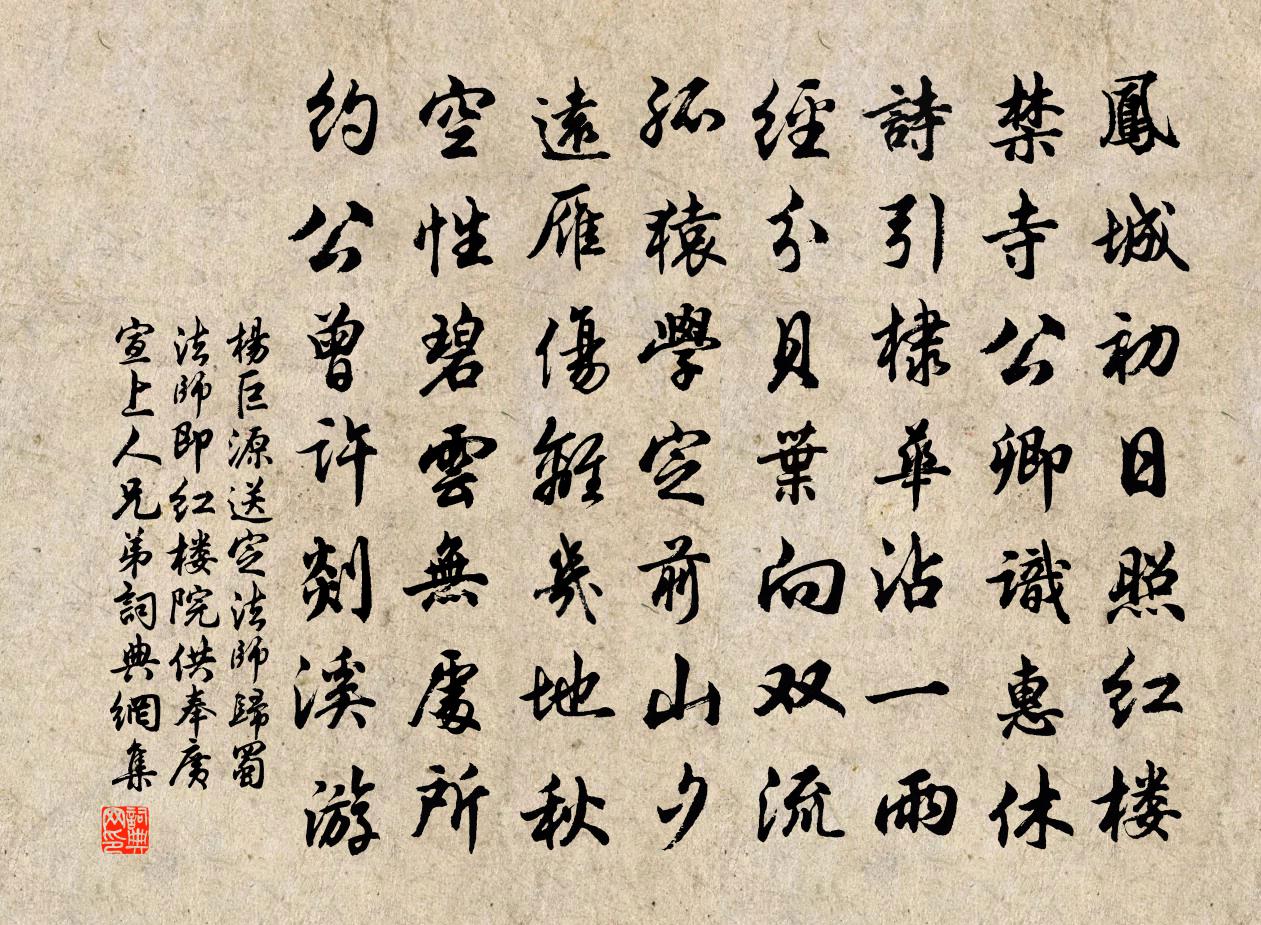 鳳城初日照红楼
禁寺公卿識惠休
詩引棣華沾一雨
經分貝葉向双流
孤猿學定前山夕
遠雁傷離幾地秋
空性碧雲無處所
約公曾許剡溪游
楊巨源送定法師歸蜀
法師即红楼院供奉廣
宣上人兄弟詞典網集
詞典網印